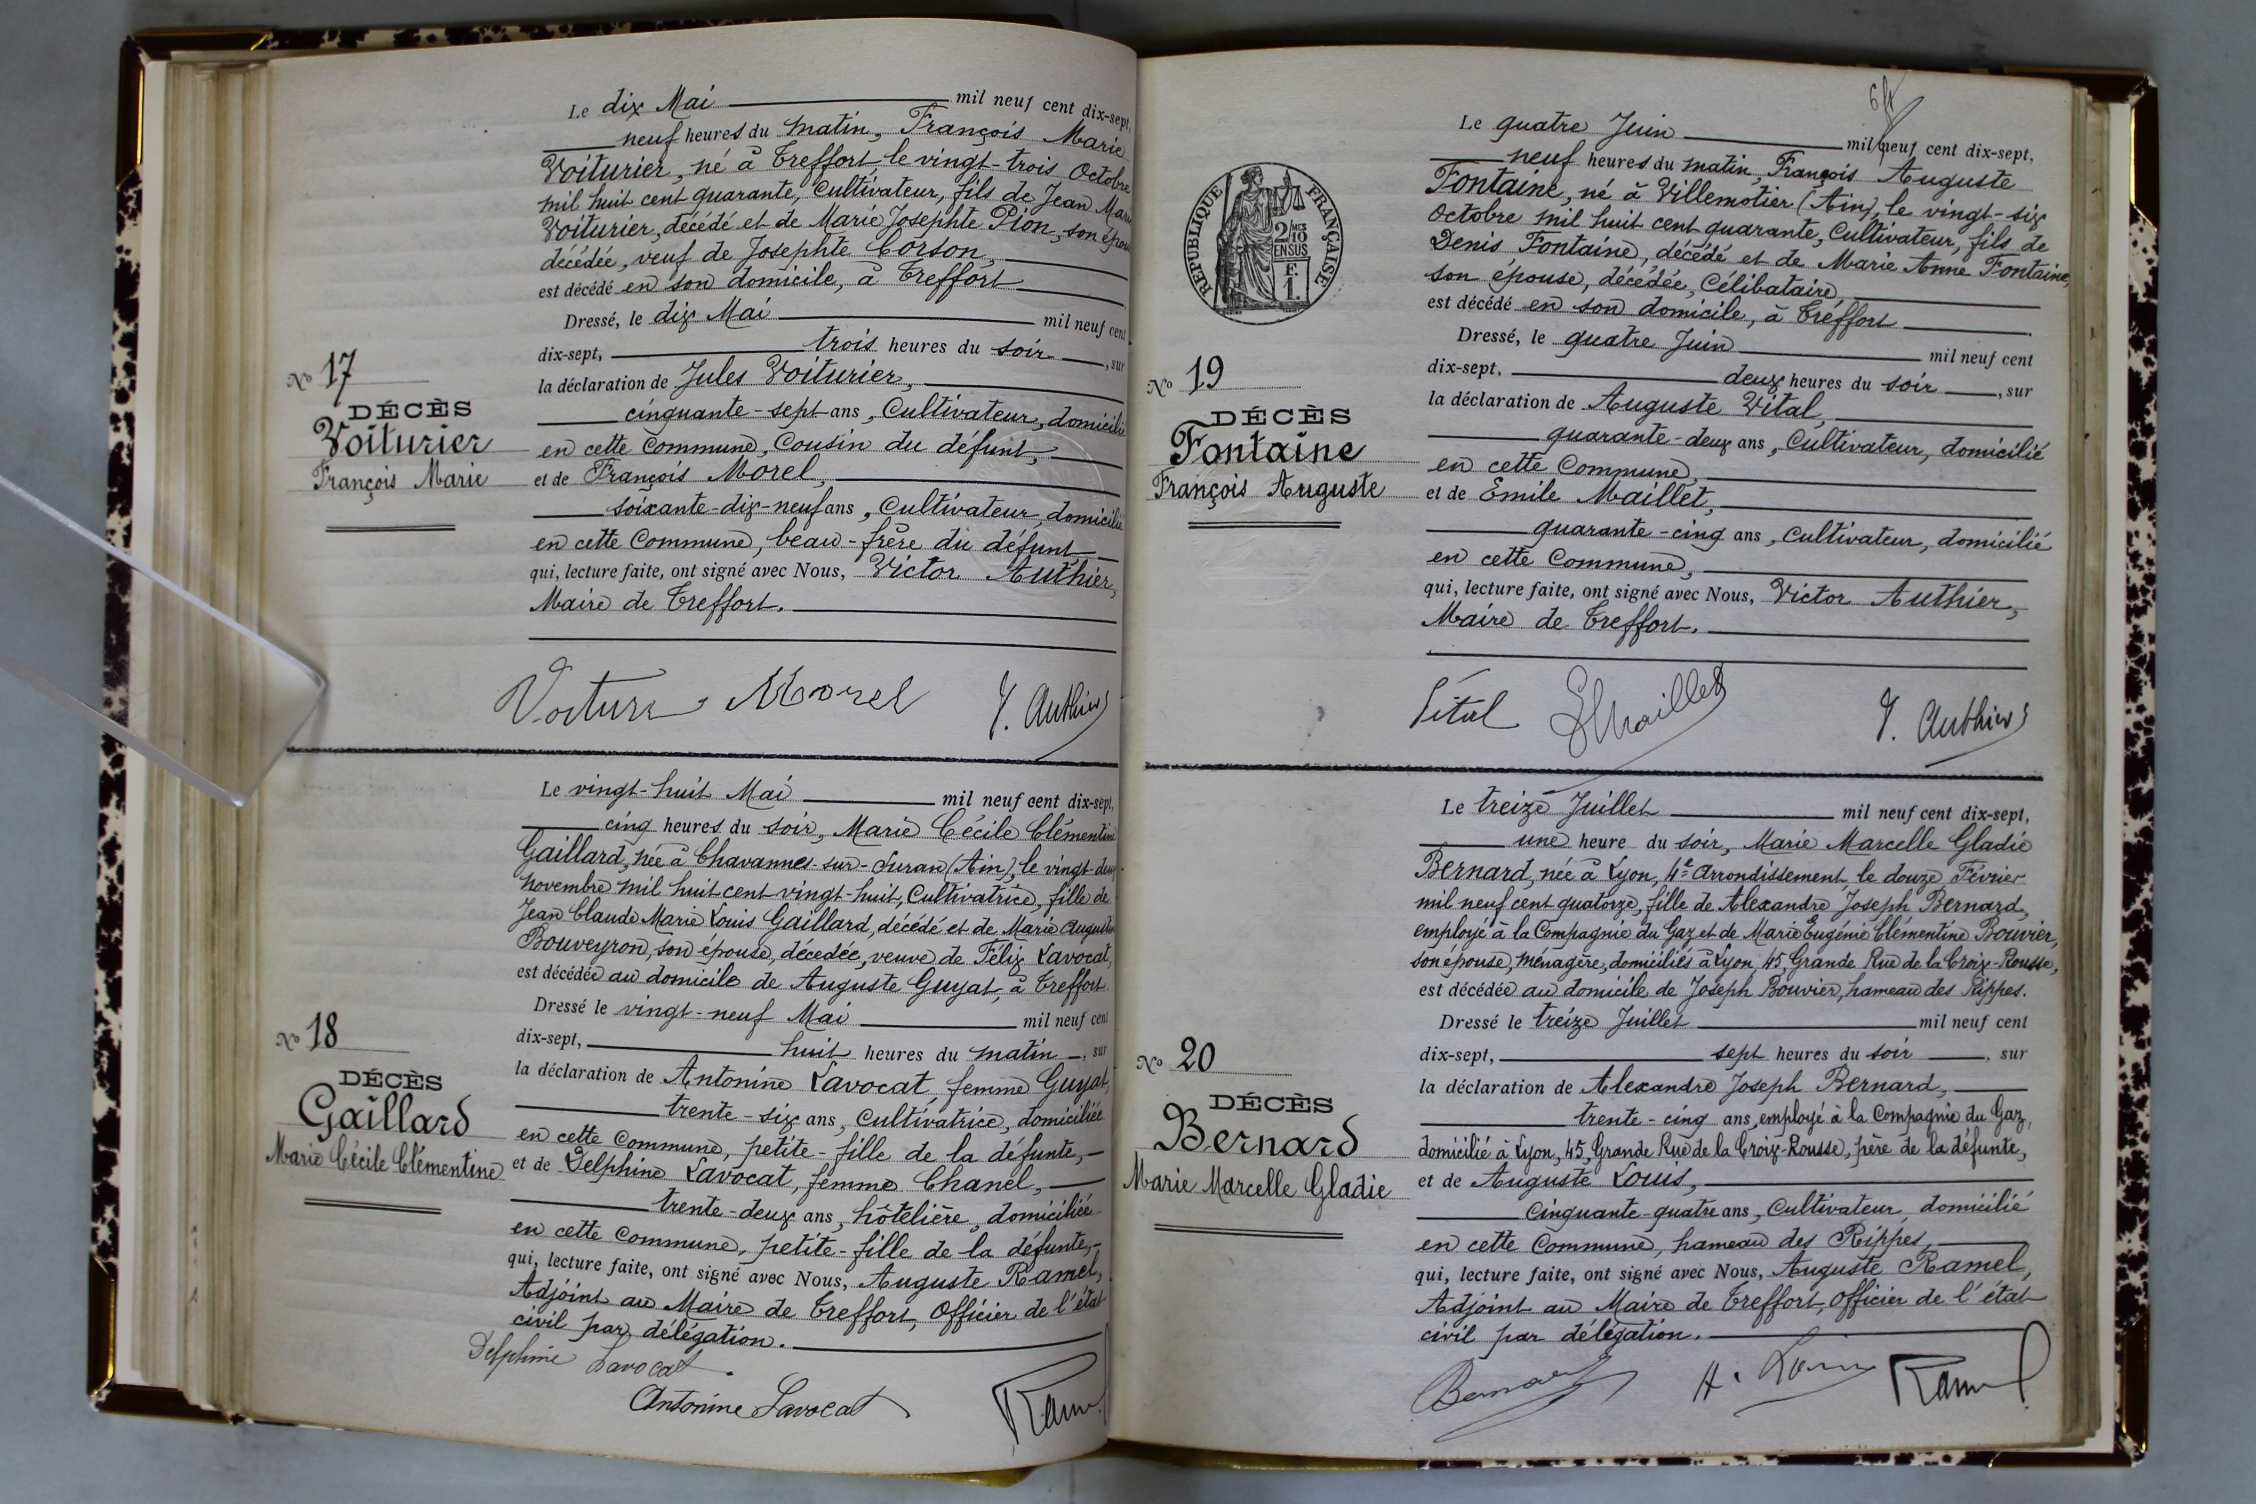 Le dix Mai mil neuf cent dix-sept,
neuf heures du matin, François Marie
Voiturier, né à Treffort, le vingt-trois Octobre
mil huit cent quarante, Cultivateur, fils de Jean Marie
Voiturier, décédé et de Marie Josephte Pion, son épouse
décédée, veuf de Josephte Corson,
est décédé en son domicile, à Treffort
Dressé, le dix Mai mil neuf cent
dix-sept, trois heures du soir, sur
la déclaration de Jules Voiturier,
cinquante-sept ans, Cultivateur, domicilié
en cette Commune, Cousin du défunt,
et de François Morel,
soixante-dix-neuf ans, Cultivateur, domicilié
en cette Commune, beau-frère du défunt
qui, lecture faite, ont signé avec Nous, Victor Authier,
Maire de Treffort.
No 17
DÉCÈS
Voiturier
François Marie
Voiturier Morel V. Authier
Le vingt-huit Mai mil neuf cent dix-sept,
cinq heures du soir, Marie Cécile Clémentine
Gaillard, née à Chavannes-sur-Suran (Ain), le vingt-deux
novembre mil huit cent vingt-huit, Cultivatrice, fille de
Jean Claude Marie Louis Gaillard, décédé et de Marie Auguste
Bouveyron, son épouse, décédée, veuve de Félix Lavocat,
est décédée au domicile de Auguste Guyat, à Treffort.
Dressé le vingt-neuf Mai mil neuf cent
dix-sept, huit heures du matin, sur
la déclaration de Antonine Lavocat, femme Guyat,
trente-six ans, Cultivatrice, domiciliée
en cette Commune, petite-fille de la défunte,
et de Delphine Lavocat, femme Chanel,
trente-deux ans, hôtelière, domiciliée
en cette Commune, petite-fille de la défunte,
qui, lecture faite, ont signé avec Nous, Auguste Ramel,
Adjoint au Maire de Treffort, Officier de l'état
civil par délégation.
No 18
DÉCÈS
Gaillard
Marie Cécile Clémentine
Delphine Lavocat.
Antonine Lavocat Ramel
Le quatre Juin mil neuf cent dix-sept,
neuf heures du matin, François Auguste
Fontaine, né à Villemotier (Ain), le vingt-six
Octobre mil huit cent quarante, Cultivateur, fils de
Denis Fontaine, décédé et de Marie Anne Fontaine,
son épouse, décédée, Célibataire,
est décédé en son domicile, à Treffort
Dressé, le quatre Juin mil neuf cent
dix-sept, deux heures du soir, sur
la déclaration de Auguste Vital,
quarante-deux ans, Cultivateur, domicilié
en cette Commune,
et de Emile Maillet,
quarante-cinq ans, Cultivateur, domicilié
en cette Commune,
qui, lecture faite, ont signé avec Nous, Victor Authier,
Maire de Treffort.
RÉPUBLIQUE FRANÇAISE
2/10
EN SUS
F.
1.
No 19
DÉCÈS
Fontaine
François Auguste
Vital E Maillet V. Authier
Le treize Juillet mil neuf cent dix-sept,
une heure du soir, Marie Marcelle Gladie
Bernard, née à Lyon, 4e Arrondissement, le douze Février
mil neuf cent quatorze, fille de Alexandre Joseph Bernard,
employé à la Compagnie du Gaz et de Marie Eugénie Clémentine Bouvier,
son épouse, ménagère, domiciliés à Lyon, 45, Grande Rue de la Croix-Rousse,
est décédée au domicile de Joseph Bouvier, hameau des Rippes.
Dressé le treize Juillet mil neuf cent
dix-sept, sept heures du soir, sur
la déclaration de Alexandre Joseph Bernard,
trente-cinq ans, employé à la Compagnie du Gaz,
domicilié à Lyon, 45, Grande Rue de la Croix-Rousse, père de la défunte,
et de Auguste Louis,
Cinquante-quatre ans, Cultivateur, domicilié
en cette Commune, hameau des Rippes,
qui, lecture faite, ont signé avec Nous, Auguste Ramel,
Adjoint au Maire de Treffort, Officier de l'état
civil par délégation.
No 20
DÉCÈS
Bernard
Marie Marcelle Gladie
Bernard A. Louis Ramel